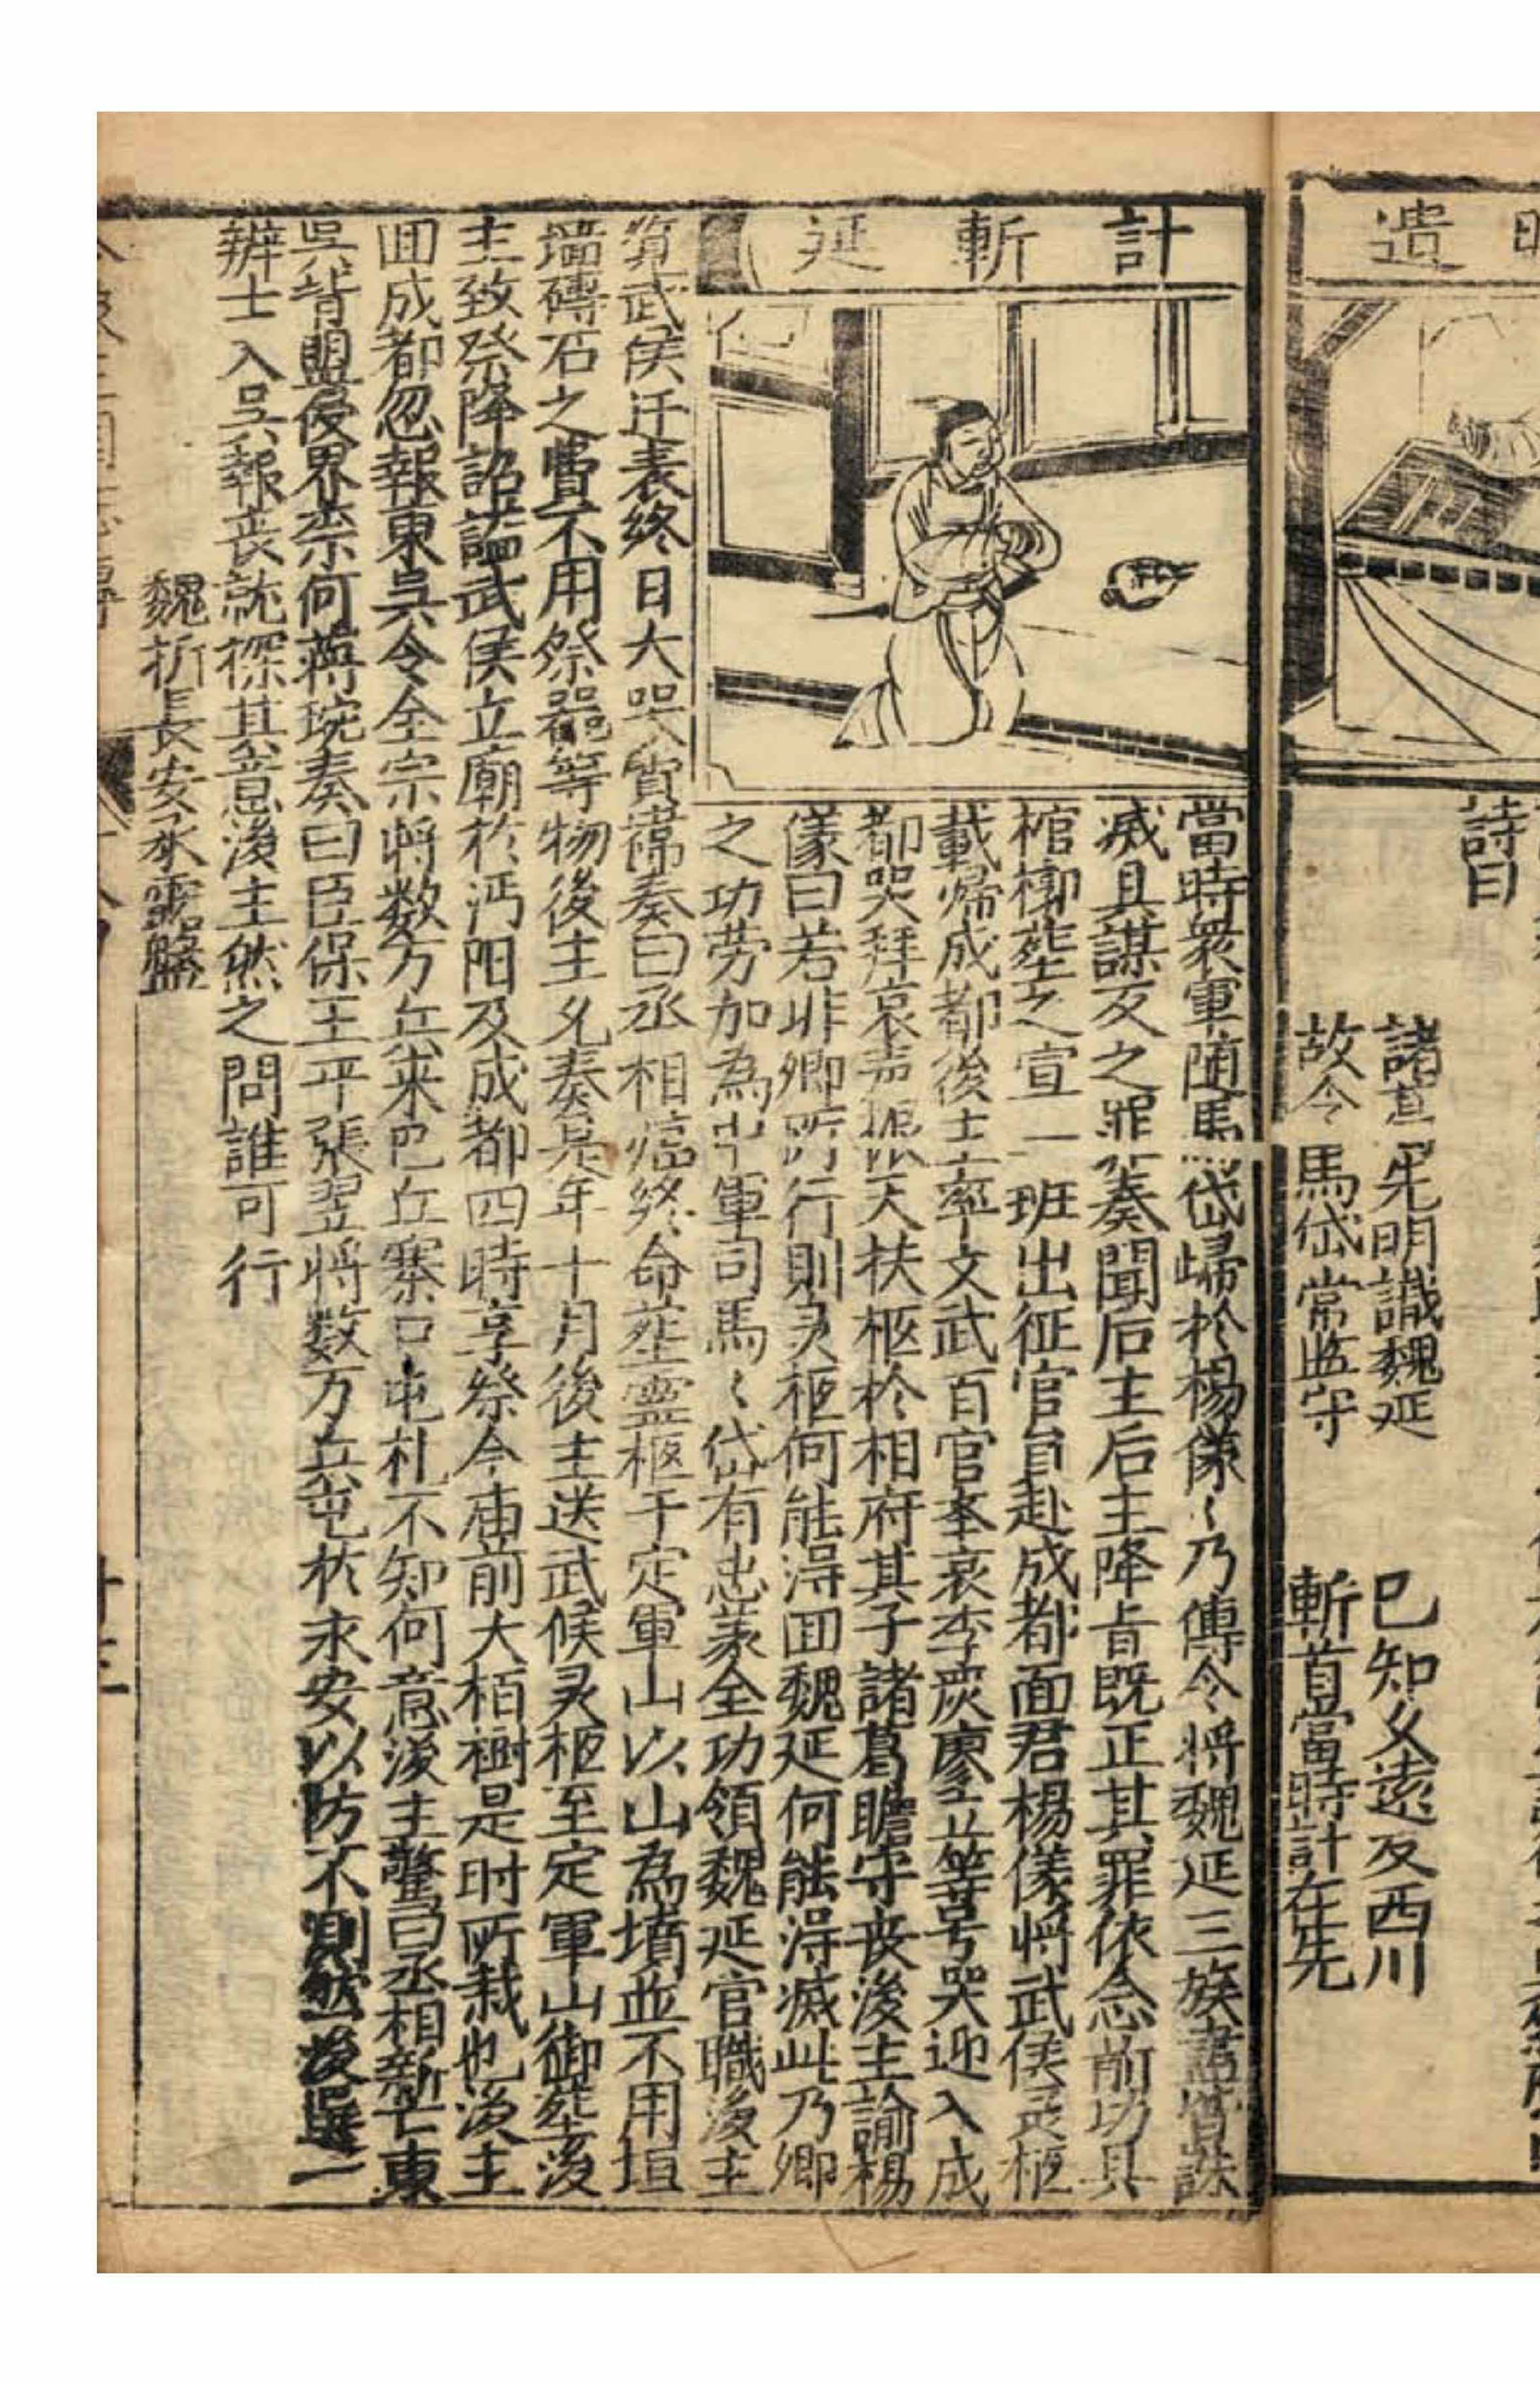 遺
詩曰
諸 孔明識魏延
已知久遠反西川
故令馬岱常監守
斬首當時計在先
計斬延
當時衆軍随馬岱歸於楊儀〻乃傳令将魏延三族盡皆誅
滅具謀反之罪 奏聞后主后主降㫖既正其罪依念前功具
棺槨塟之宣一班出征官員赴成都面君楊儀将武侯灵柩
載歸成都後主率文武百官夆哀李嚴廖立等号哭迎入成
都哭拜哀声振天扶柩於相府其子諸葛瞻守丧後主諭楊
儀曰若非卿所行則灵柩何能淂囬魏延何能淂滅此乃卿
之功劳加為中軍司馬〻岱有忠義全功領魏延官職後主
賫武侯迁表終日大哭賫 奏曰丞相臨終命塟霊柩于定軍山以山為墳並不用垣
墻磚石之費不用祭器等物後主允奏是年十月後主送武候灵柩至定軍山御塟後
主致祭降詔諡武侯立廟於沔阳及成都四時享祭今庙前大栢樹是时所栽也後主
囬成都忽報東吳令全宗将数万兵来巴丘寨口屯札不知何意後主驚曰丞相新亡東
吳背盟侵界柰何蔣琬奏曰臣保王平張翌将数万兵屯於永安以防不測然後選一
辨士入吳報丧就探其意後主然之問誰可行
魏折長安承露盤